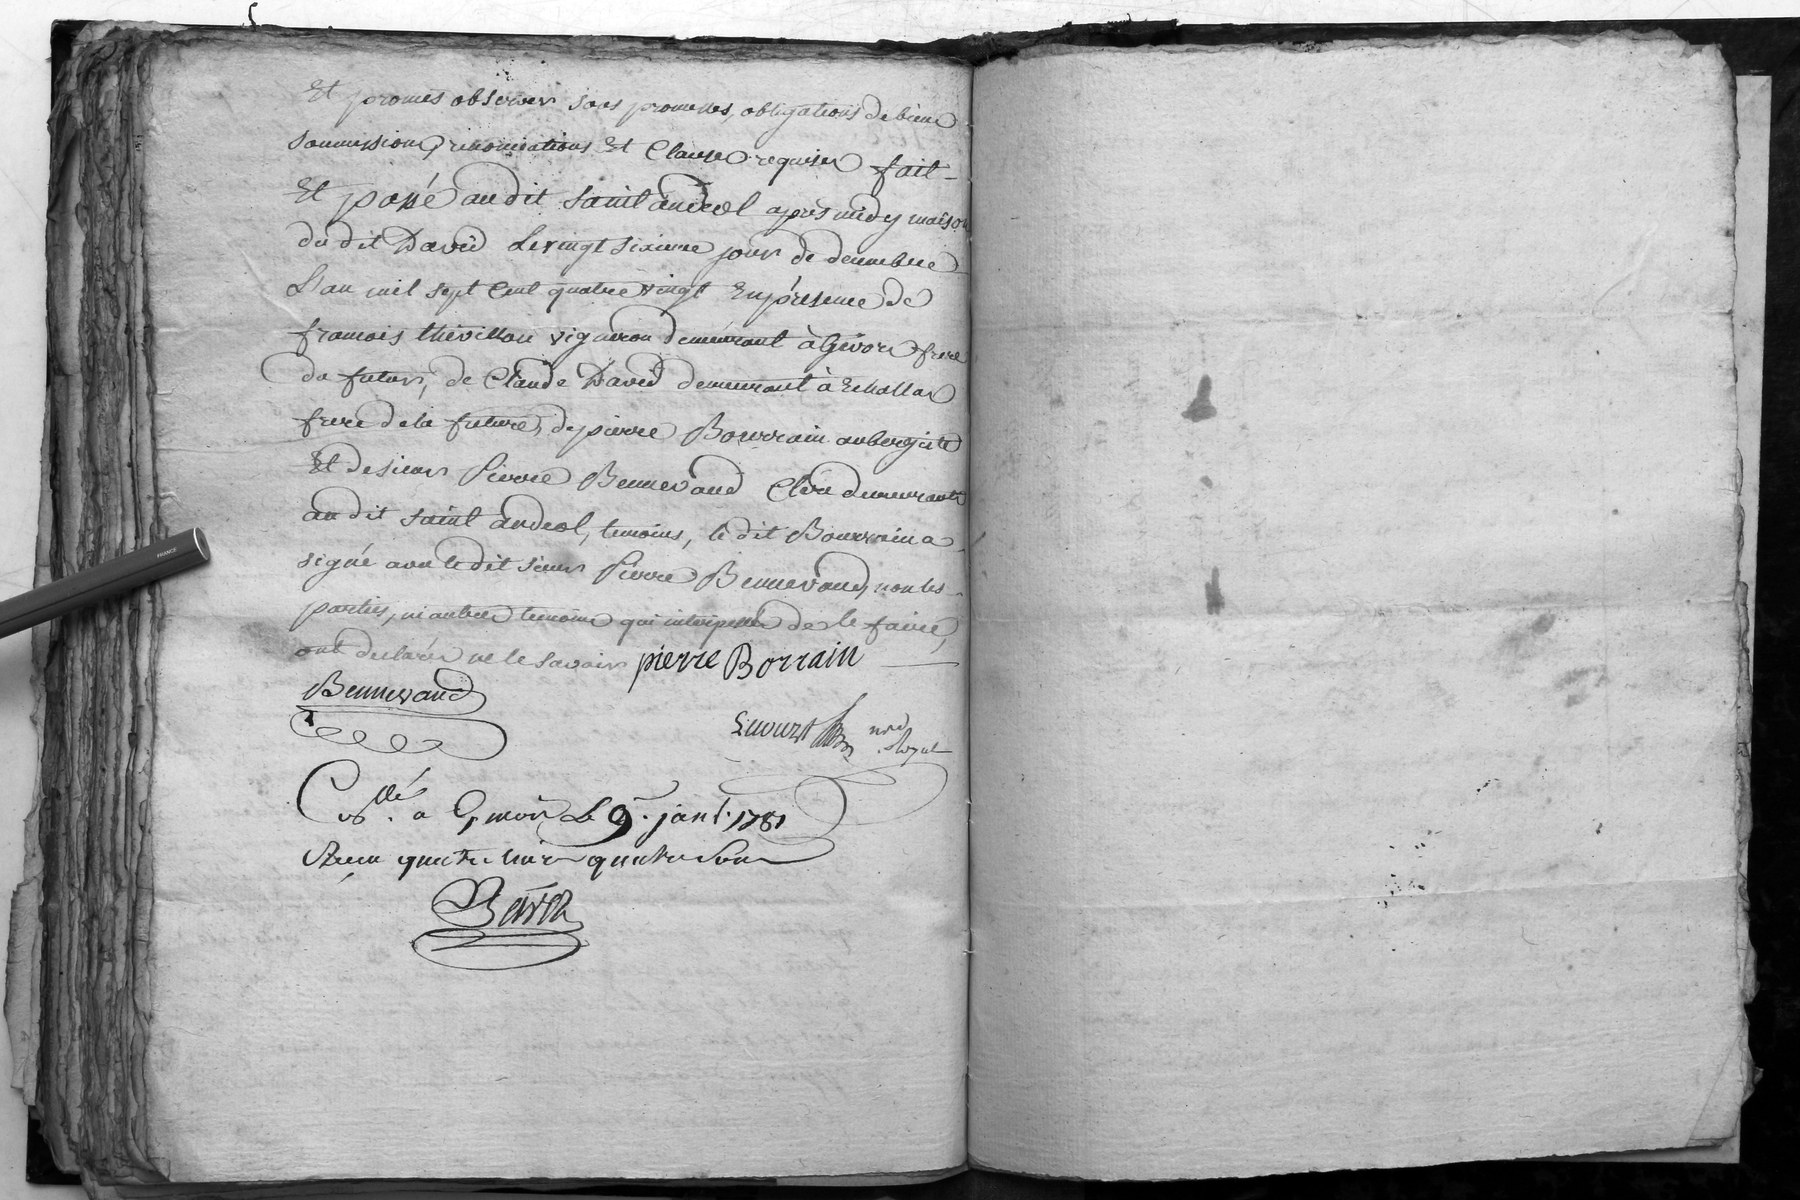 Et promis observer sous promesses, obligations de biens
soumissions, renonciations Et Clauses requises fait
Et passé au dit saint andeol apres midy maison
du dit David Le vingt sixieme jour de decembre
L'an mil sept Cent quatre vingt En présence de
francois thevillon vigneron demeurant à Givors frere
du futur, de Claude David demeurant à Echallas
frere de la future, de pierre Bourrain aubergiste
Et de sieur Pierre Bennevand Clerc demeurants
au dit saint andeol, temoins, le dit Bourrain a
signé avec le dit sieur Pierre Bennevand, non les
parties, ni autres temoins qui interpellés de le faire,
ont declarés ne le savoir pierre Borrain
Bennevand
nore Royal
Collé a Le 9. janr. 1781
Reçu quatre livres quatre sous